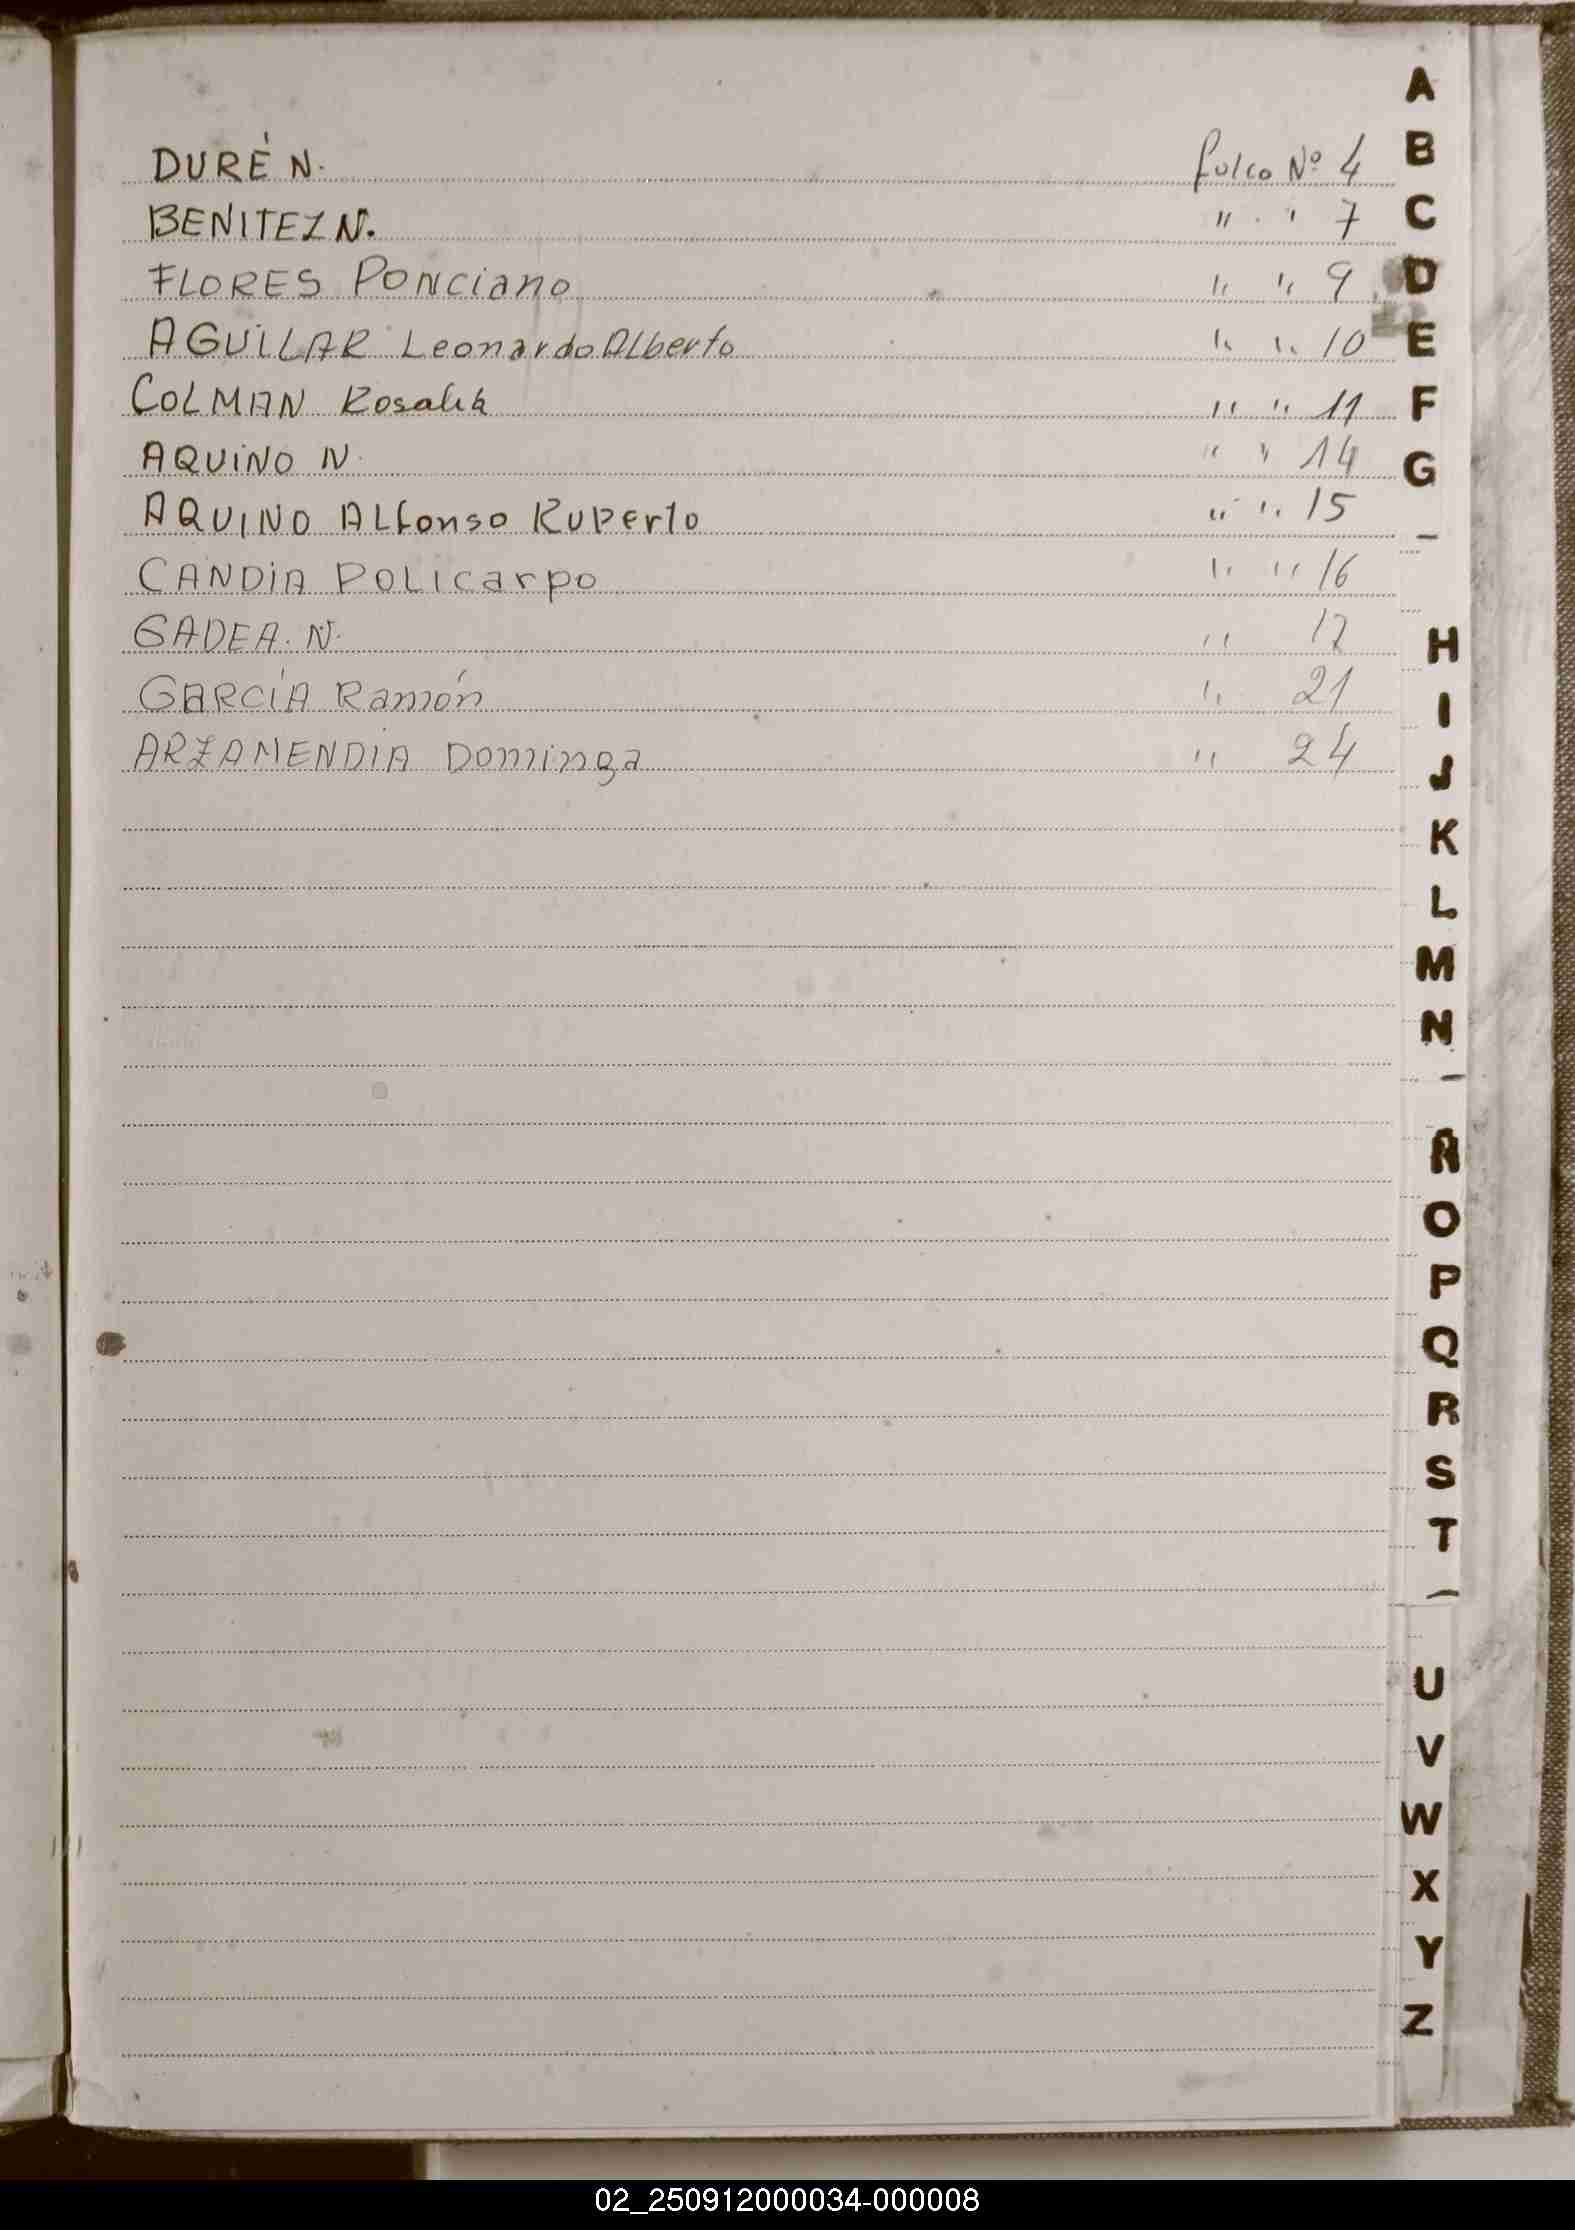 DURÉ N. fulco Nº 4
BENITEZ N. " " 7
FLORES Ponciano " " 9
AGUiLAR Leonardo Alberto " " 10
COLMAN Rosalia " " 11
AQUiNO N. " " 14
AQUINO ALfonso RUPerto " " 15
CANDiA POLicarpo " " 16
GADEA. N. " 17
GARCÍA Ramón " 21
ARZAMENDIA Dominga " 24
A
B
C
D
E
F
G
H
I
J
K
L
M
N
Ñ
O
P
Q
R
S
T
U
V
W
X
Y
Z
02_250912000034-000008